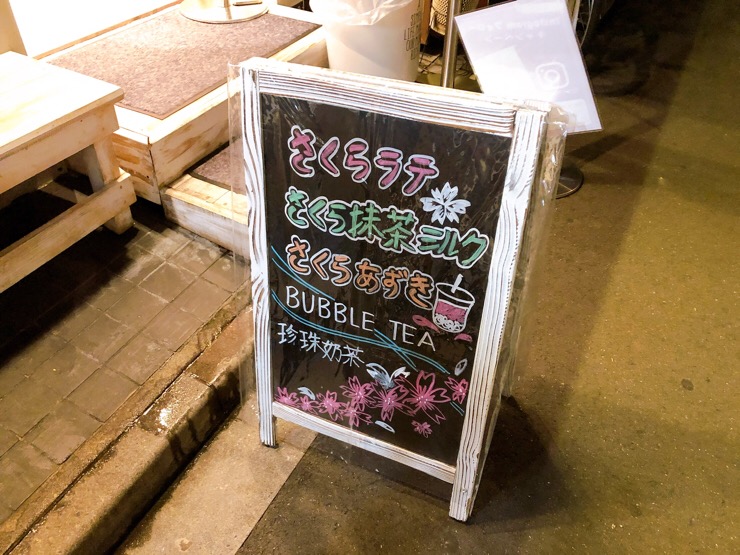 さくらラテ
さくら抹茶ミルク
さくらあずき
BUBBLE TEA
珍珠奶茶